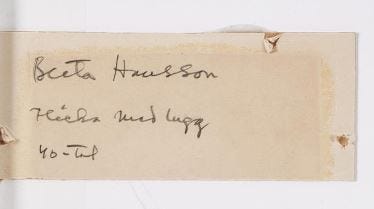 Berta Hansson
Flicka med lugg
40-tal